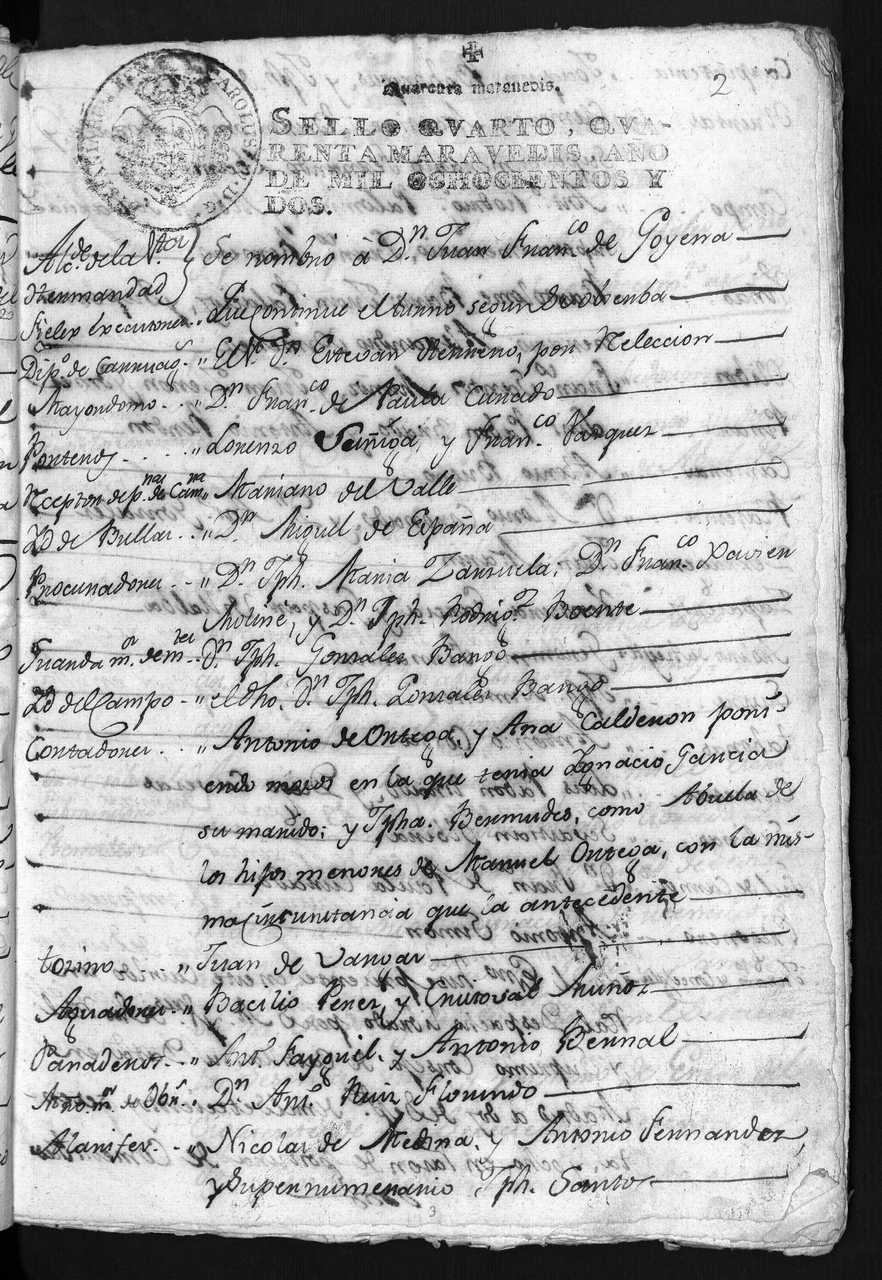 2
Quarenta maravedis.
SELLO QVARTO, QVA-
RENTA MARAVEDIS, AÑO
DE MIL OCHOCIENTOS Y
DOS.
Alc.de de la Sta. Se nombró à D.n Juan Fran.co de Goyena
Hermandad
Fieles Executores.. Que continue el turno segun
Dip.o de ,, El Sr. Dn Estevan Herrero, por Reeleccion
Mayordomo. .. ,, D.n Fran.co de Paula Cañado
Porteros .... ,, Lorenzo Suñiga, y Fran.co Vazquez
Receptor de p.nas de Cam.ra ,, Mariano del Valle
Yd de Bullas .. ,, D.n Miguel de España
Procuradores .. ,, D.n Jph. Maria Zarzuela; D.n Fran.co Xavier
Moline, y D.n Jph. Rodrig.z Boente
Guarda m.or de m.tes .. D.n Jph. Gonzales Bargo
Yd del Campo - ,, el dho. D.n Jph. Gonzales Bargo
Contadores .. ,, Antonio de Ortega, y Ana Calderon poni-
endo en la que tenia Ygnacio Garcia
su marido; y Jpha. Bermudes, como Abuela de
los hijos menores de Manuel Ortega, con la mis-
ma circunstancia que la antecedente
torino ,, Juan de Vargas
Aguadores .. ,, Bacilio Perez, y Cristoval Muñoz
Panaderos .. ,, Ant.o Fayguel. y Antonio Bernal
Mro. m.or de Obr.s D.n Ant.o Ruiz Florindo
Alarifes. .. ,, Nicolas de Medina, y Antonio Fernandez,
y Supernumerario Jph. Santos
3